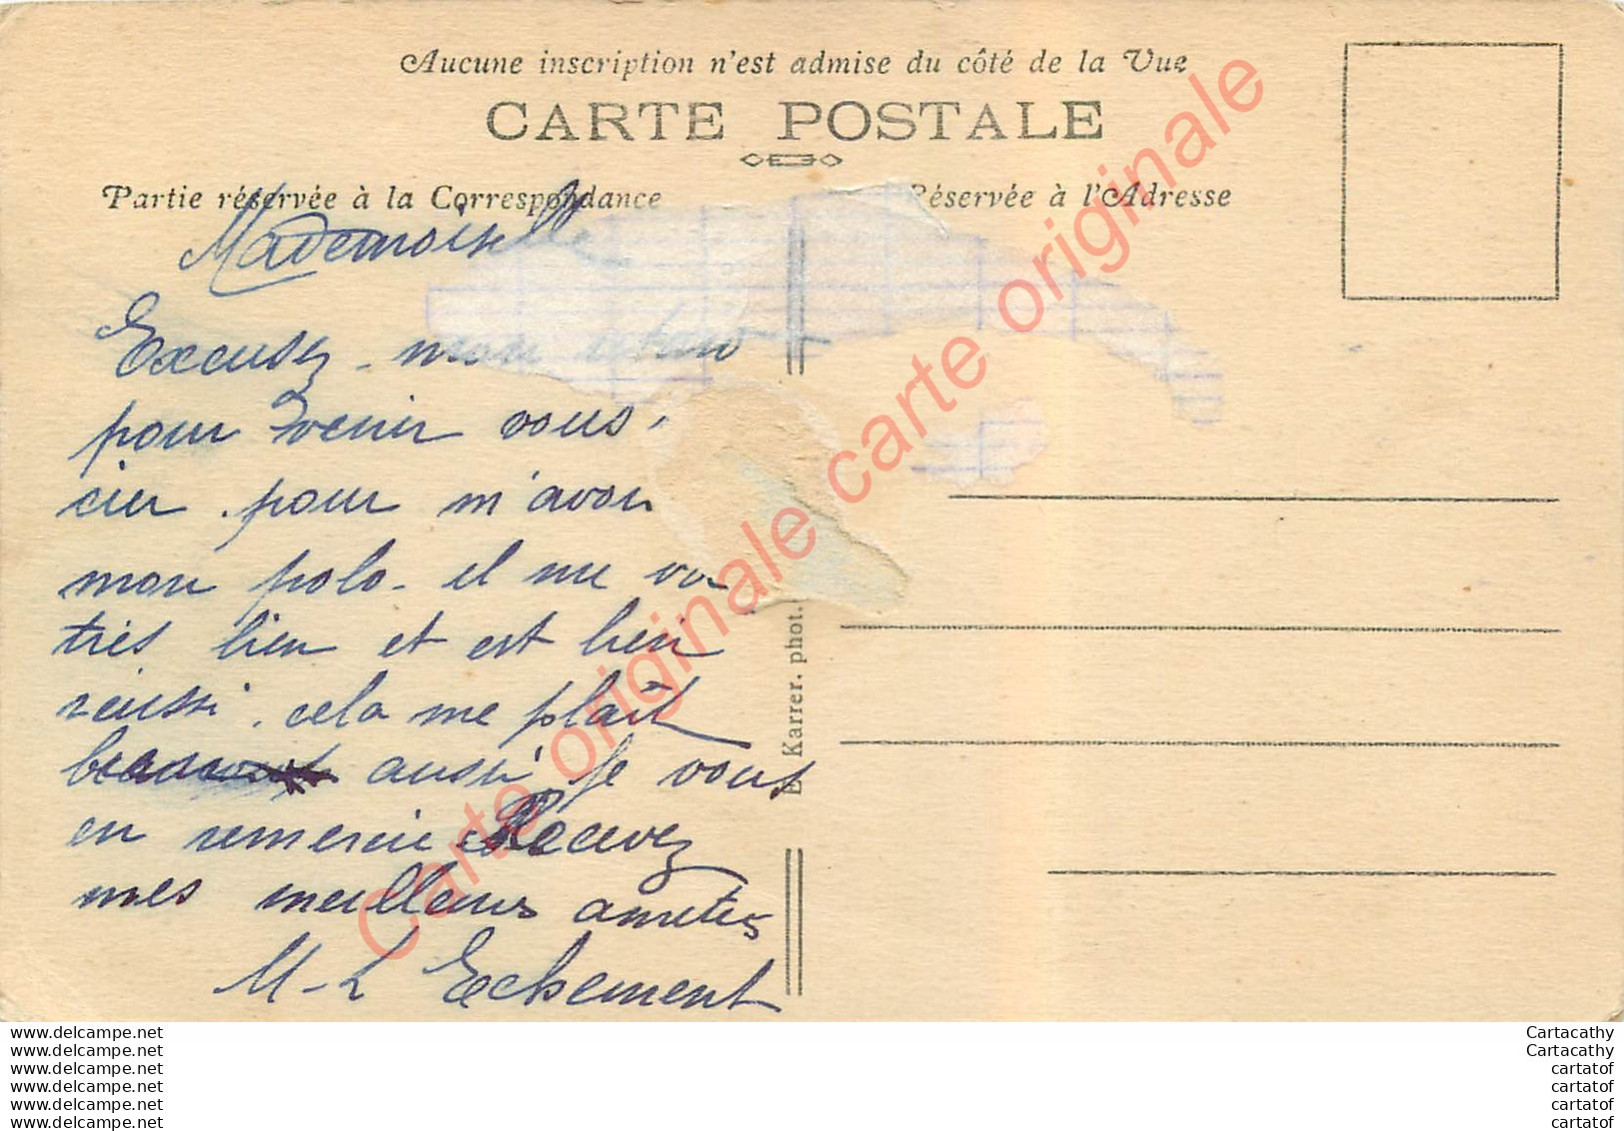 Aucune inscription n'est admise du côté de la Vue
CARTE POSTALE
Partie réservée à la Correspondance
Réservée à l'Adresse
Mademoiselle
Excusez mon retard
pour venir vous
cier pour m'avoir
mon polo il me va
très bien et est bien
réussi cela me plaît
aussi je vous
en remercie Recevez
mes meilleurs amitiés
M-L Eckement
E. Karrer. phot.
Carte originale carte originale
www.delcampe.net
www.delcampe.net
www.delcampe.net
www.delcampe.net
www.delcampe.net
www.delcampe.net
Cartacathy
Cartacathy
cartatof
cartatof
cartatof
cartatof